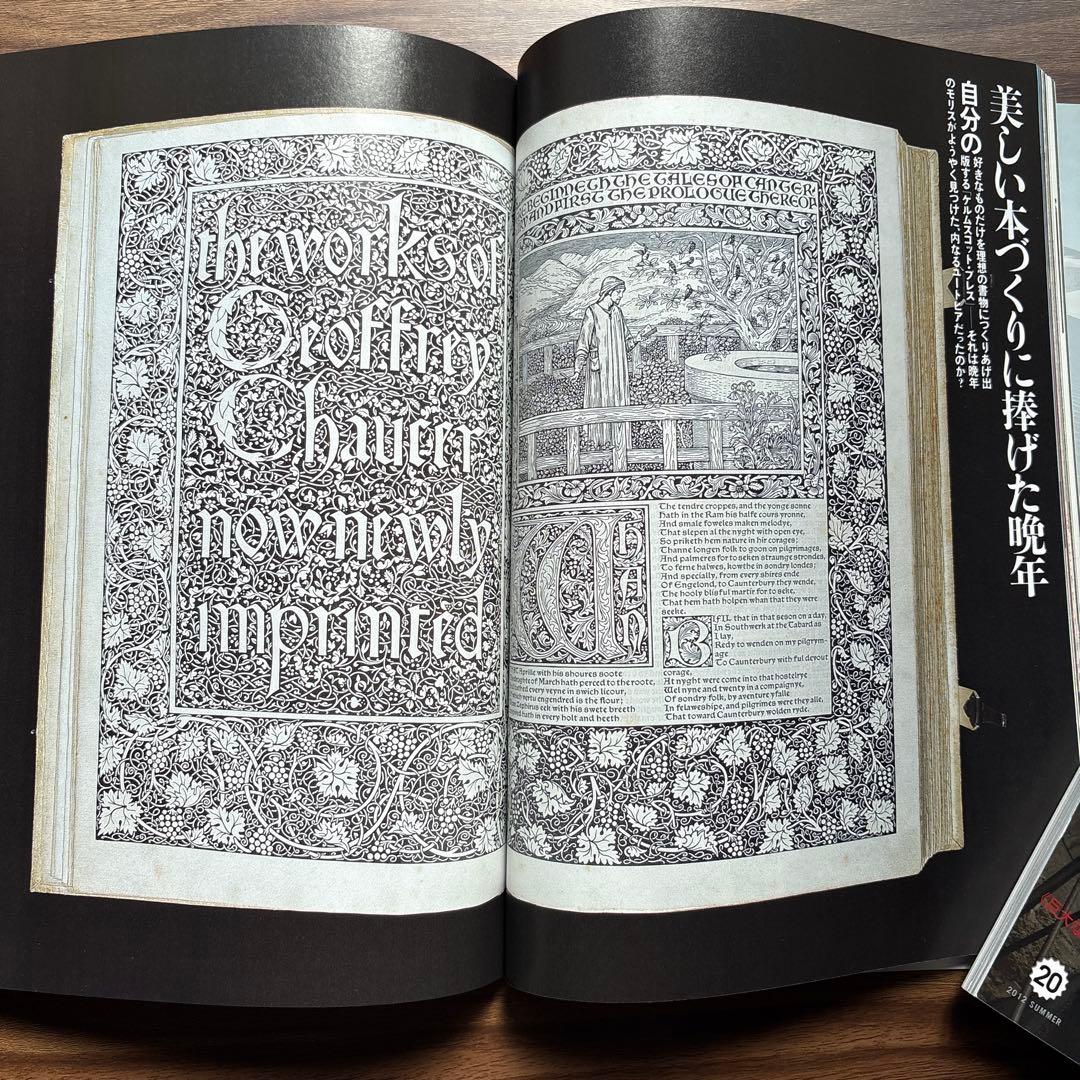 the works of
Geoffrey
Chaucer
now newly
imprinted
GINNETH THE TALES OF CANTER
AND FIRST THE PROLOGUE THEREOF
WHAN
Aprille with his shoures soote
of March hath perced to the roote,
bathed every veyne in swich licour,
vertu engendred is the flour;
Zephirus eek with his swete breeth
hath in every holt and heeth
The tendre croppes, and the yonge sonne
Hath in the Ram his halfe cours yronne,
And smale foweles maken melodye,
That slepen al the nyght with open eye,
So priketh hem nature in hir corages;
Thanne longen folk to goon on pilgrimages,
And palmeres for to seken straunge strondes,
To ferne halwes, kowthe in sondry londes;
And specially, from every shires ende
Of Engelond, to Caunterbury they wende,
The hooly blisful martir for to seke,
That hem hath holpen whan that they were
seeke.
BIFIL that in that seson on a day,
In Southwerk at the Tabard as
I lay,
Redy to wenden on my pilgrym-
age
To Caunterbury with ful devout
corage,
At nyght were come into that hostelrye
Wel nyne and twenty in a compaignye,
Of sondry folk, by aventure yfalle
In felaweshipe, and pilgrimes were they alle,
That toward Caunterbury wolden ryde.
美しい本づくりに捧げた晩年
自分の好きなものだけを理想の書物につくりあげ出
版する「ケルムスコット・プレス」──それは晩年
のモリスがようやく見つけた、内なるユートピアだったのか?
20
2012 SUMMER